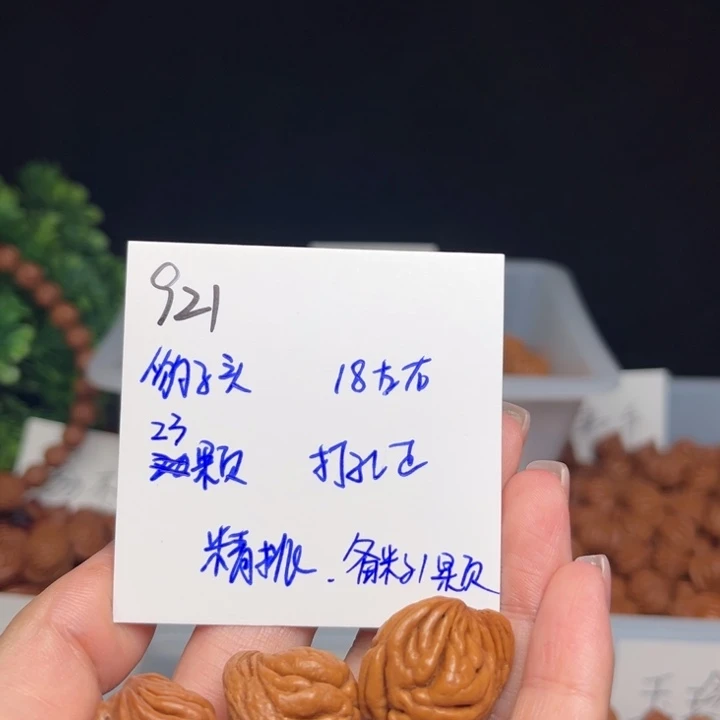 921
豹子头 18左右
23
颗 打孔正
精挑.备籽1颗